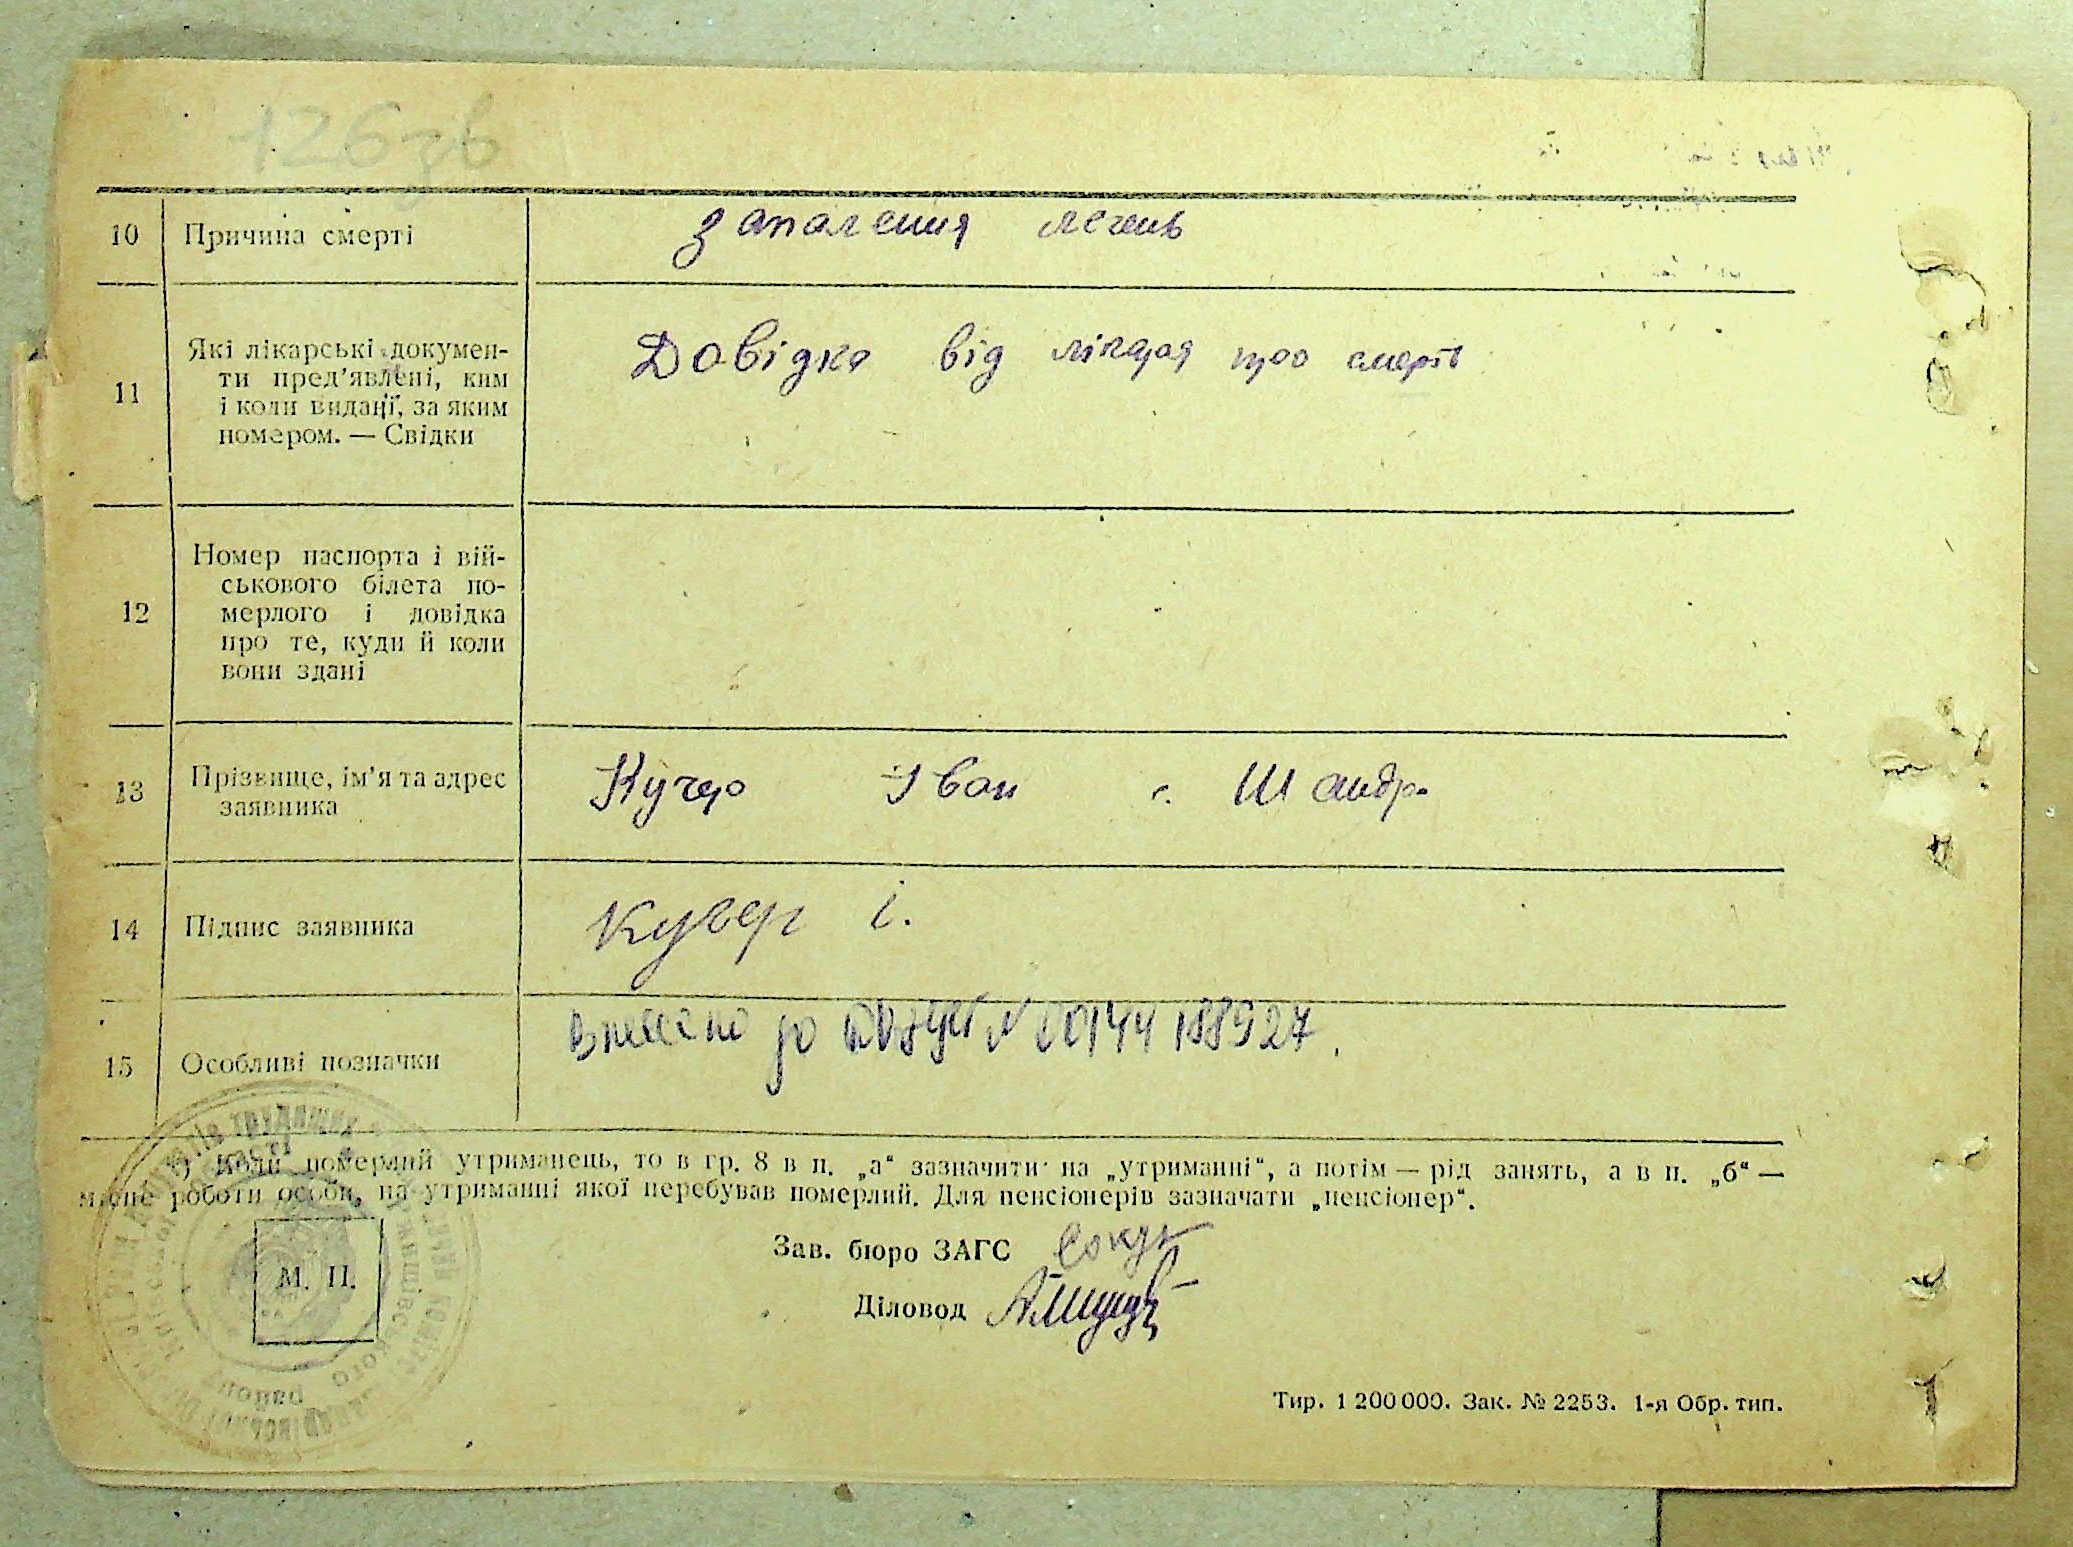 126 зв
10 Причина смерті запалення легень
11 Які лікарські докумен-
ти пред'явлені, ким
і коли видані, за яким
номером. — Свідки
Довідка від лікаря про смерть
12 Номер паспорта і вій-
ськового білета по-
мерлого і довідка
про те, куди й коли
вони здані
13 Прізвище, ім'я та адрес
заявника
Кучер Іван с. Шандра
14 Підпис заявника Кучер і.
15 Особливі позначки Внесено до № 00144188927.
*) Коли померлий утриманець, то в гр. 8 в п. „а“ зазначити на „утриманні“, а потім — рід занять, а в п. „б“ —
місце роботи особи, на утриманні якої перебував померлий. Для пенсіонерів зазначати „пенсіонер“.
М. П.
Зав. бюро ЗАГС
Діловод
Тир. 1 200 000. Зак. № 2253. 1-я Обр. тип.